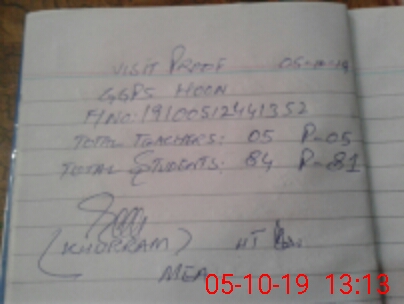 VISIT PROOF 05-10-19
GGPS HOON
F/NO: 19100512441352
TOTAL TEACHERS: 05 P-05
TOTAL STUDENTS: 84 P-81
(KHURRAM) HT
MEA
05-10-19 13:13